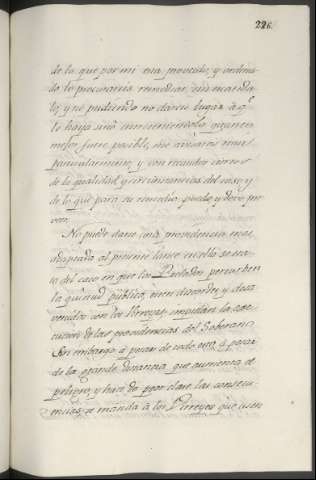 226.
de lo que por mi esta proveido, y ordena
do lo procurareis remediar, sin escanda
lo, y no pudiendo no dareis lugar à q.e
se haga sino conviniendolo quanto
mejor fuere posible, me avisareis mui
particularmente, y con recaudos ciertos
de la qualidad, y circunstancias del caso, y
de lo que para su remedio puedo, y devo pro
veer.
No puede darse una providencia mas
adaptada al presente lance en ello se tra
ta del caso en que los Prelados perturben
la quietud publica, esten discordes y desa
venidos con los Virreyes, impidan la exe
cucion de las providencias del Soberano
Sin embargo, à pesar de todo esto, à pesar
de la grande distancia que aumenta el
peligro, y hace de peor clase las consecu
encias, se manda à los Virreyes que usen